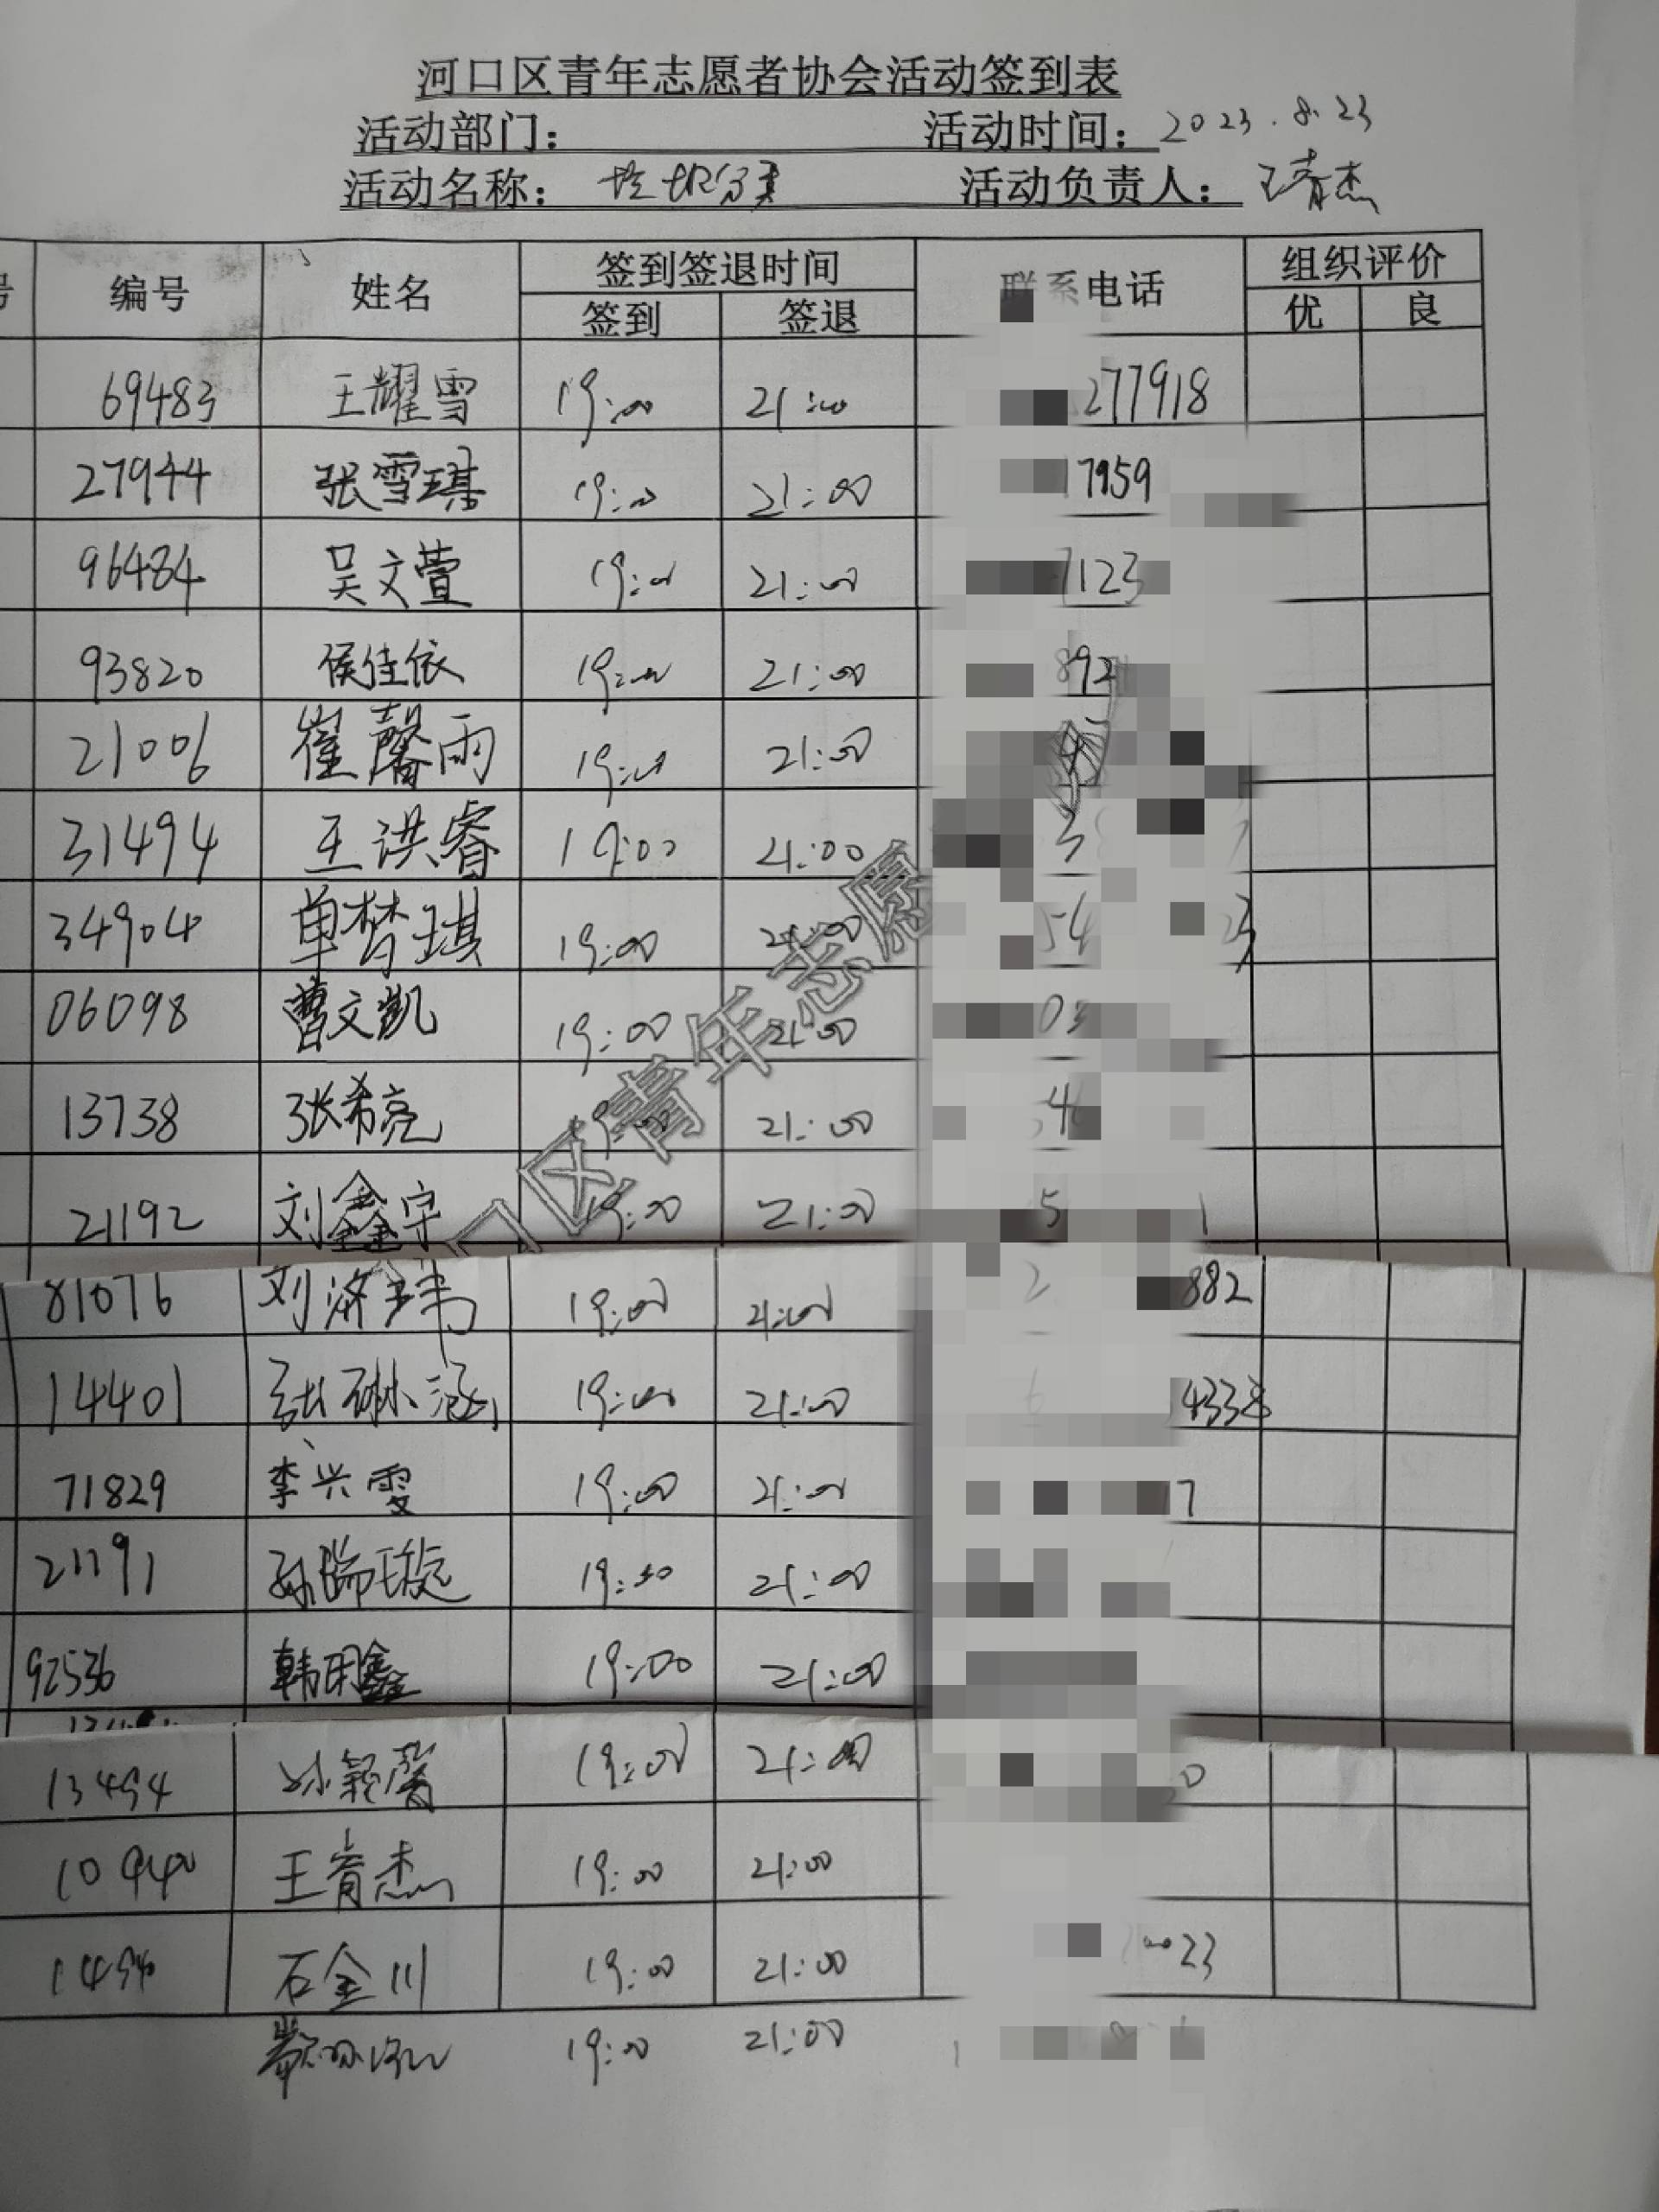 河口区青年志愿者协会活动签到表
活动部门： 活动时间：2023.8.23
活动名称：垃圾分类 活动负责人：王青杰
号 编号 姓名 签到签退时间 联系电话 组织评价
签到 签退 优 良
69483 王耀雪 19:00 21:00 277918
27944 张雪琪 19:00 21:00 7959
96484 吴文萱 19:00 21:00 1123
93820 侯佳依 19:00 21:00 892
21006 崔馨雨 19:00 21:00
31494 王洪睿 19:00 21:00 3
34904 单梦琪 19:00 21:00 54 23
06098 曹文凯 19:00 21:00 03
13738 张希亮 19:00 21:00 4
21192 刘鑫宇 19:00 21:00 5 1
81076 刘济玮 19:00 21:00 2 882
14401 张琳涵 19:00 21:00 6 4338
71829 李兴雯 19:00 21:00 17
21191 孙瑞璇 19:00 21:00
92536 韩明鑫 19:00 21:00
13494 孙颖馨 19:00 21:00 0
10940 王青杰 19:00 21:00
1494 石金川 19:00 21:00 23
19:00 21:00
口区青年志愿